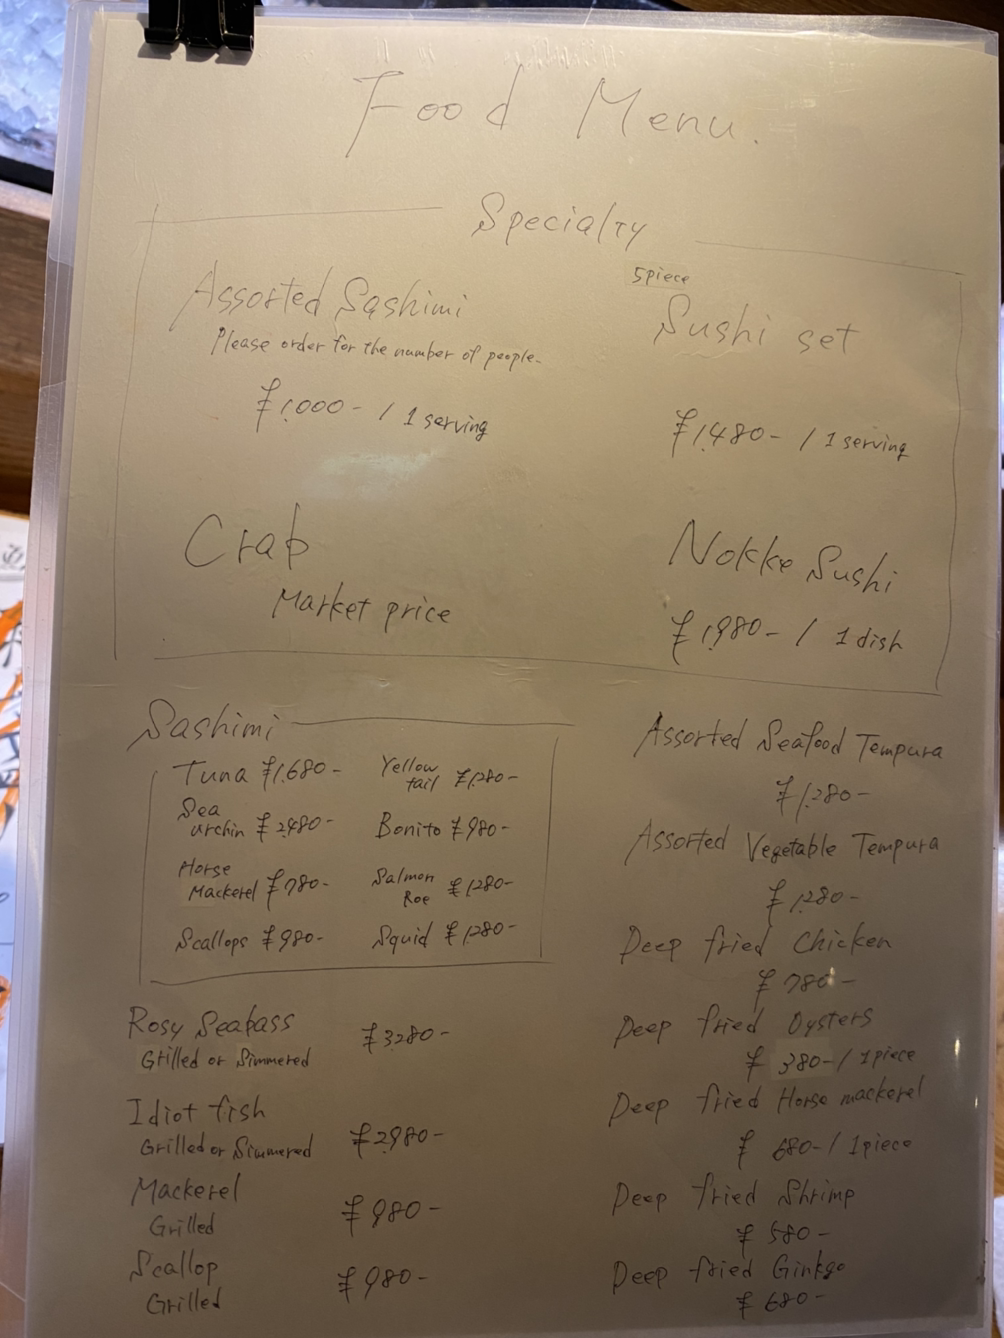 Food Menu.
Specialty
Assorted Sashimi
Please order for the number of people.
¥1,000- / 1 serving
5piece
Sushi set
¥1,480- / 1 serving
Crab
Market price
Nokke Sushi
¥1,980- / 1 dish
Sashimi
Tuna ¥1,680-
Yellow
tail ¥1,280-
Sea
urchin ¥2,480-
Bonito ¥980-
Horse
Mackerel ¥780-
Salmon
Roe ¥1,280-
Scallops ¥980-
Squid ¥1,280-
Rosy Seabass
Grilled or Simmered ¥3,280-
Idiot fish
Grilled or Simmered ¥2,980-
Mackerel
Grilled ¥980-
Scallop
Grilled ¥980-
Assorted Seafood Tempura
¥1,280-
Assorted Vegetable Tempura
¥1,280-
Deep fried Chicken
¥780-
Deep fried Oysters
¥380- / 1piece
Deep fried Horse mackerel
¥680- / 1piece
Deep fried Shrimp
¥580-
Deep fried Ginkgo
¥680-